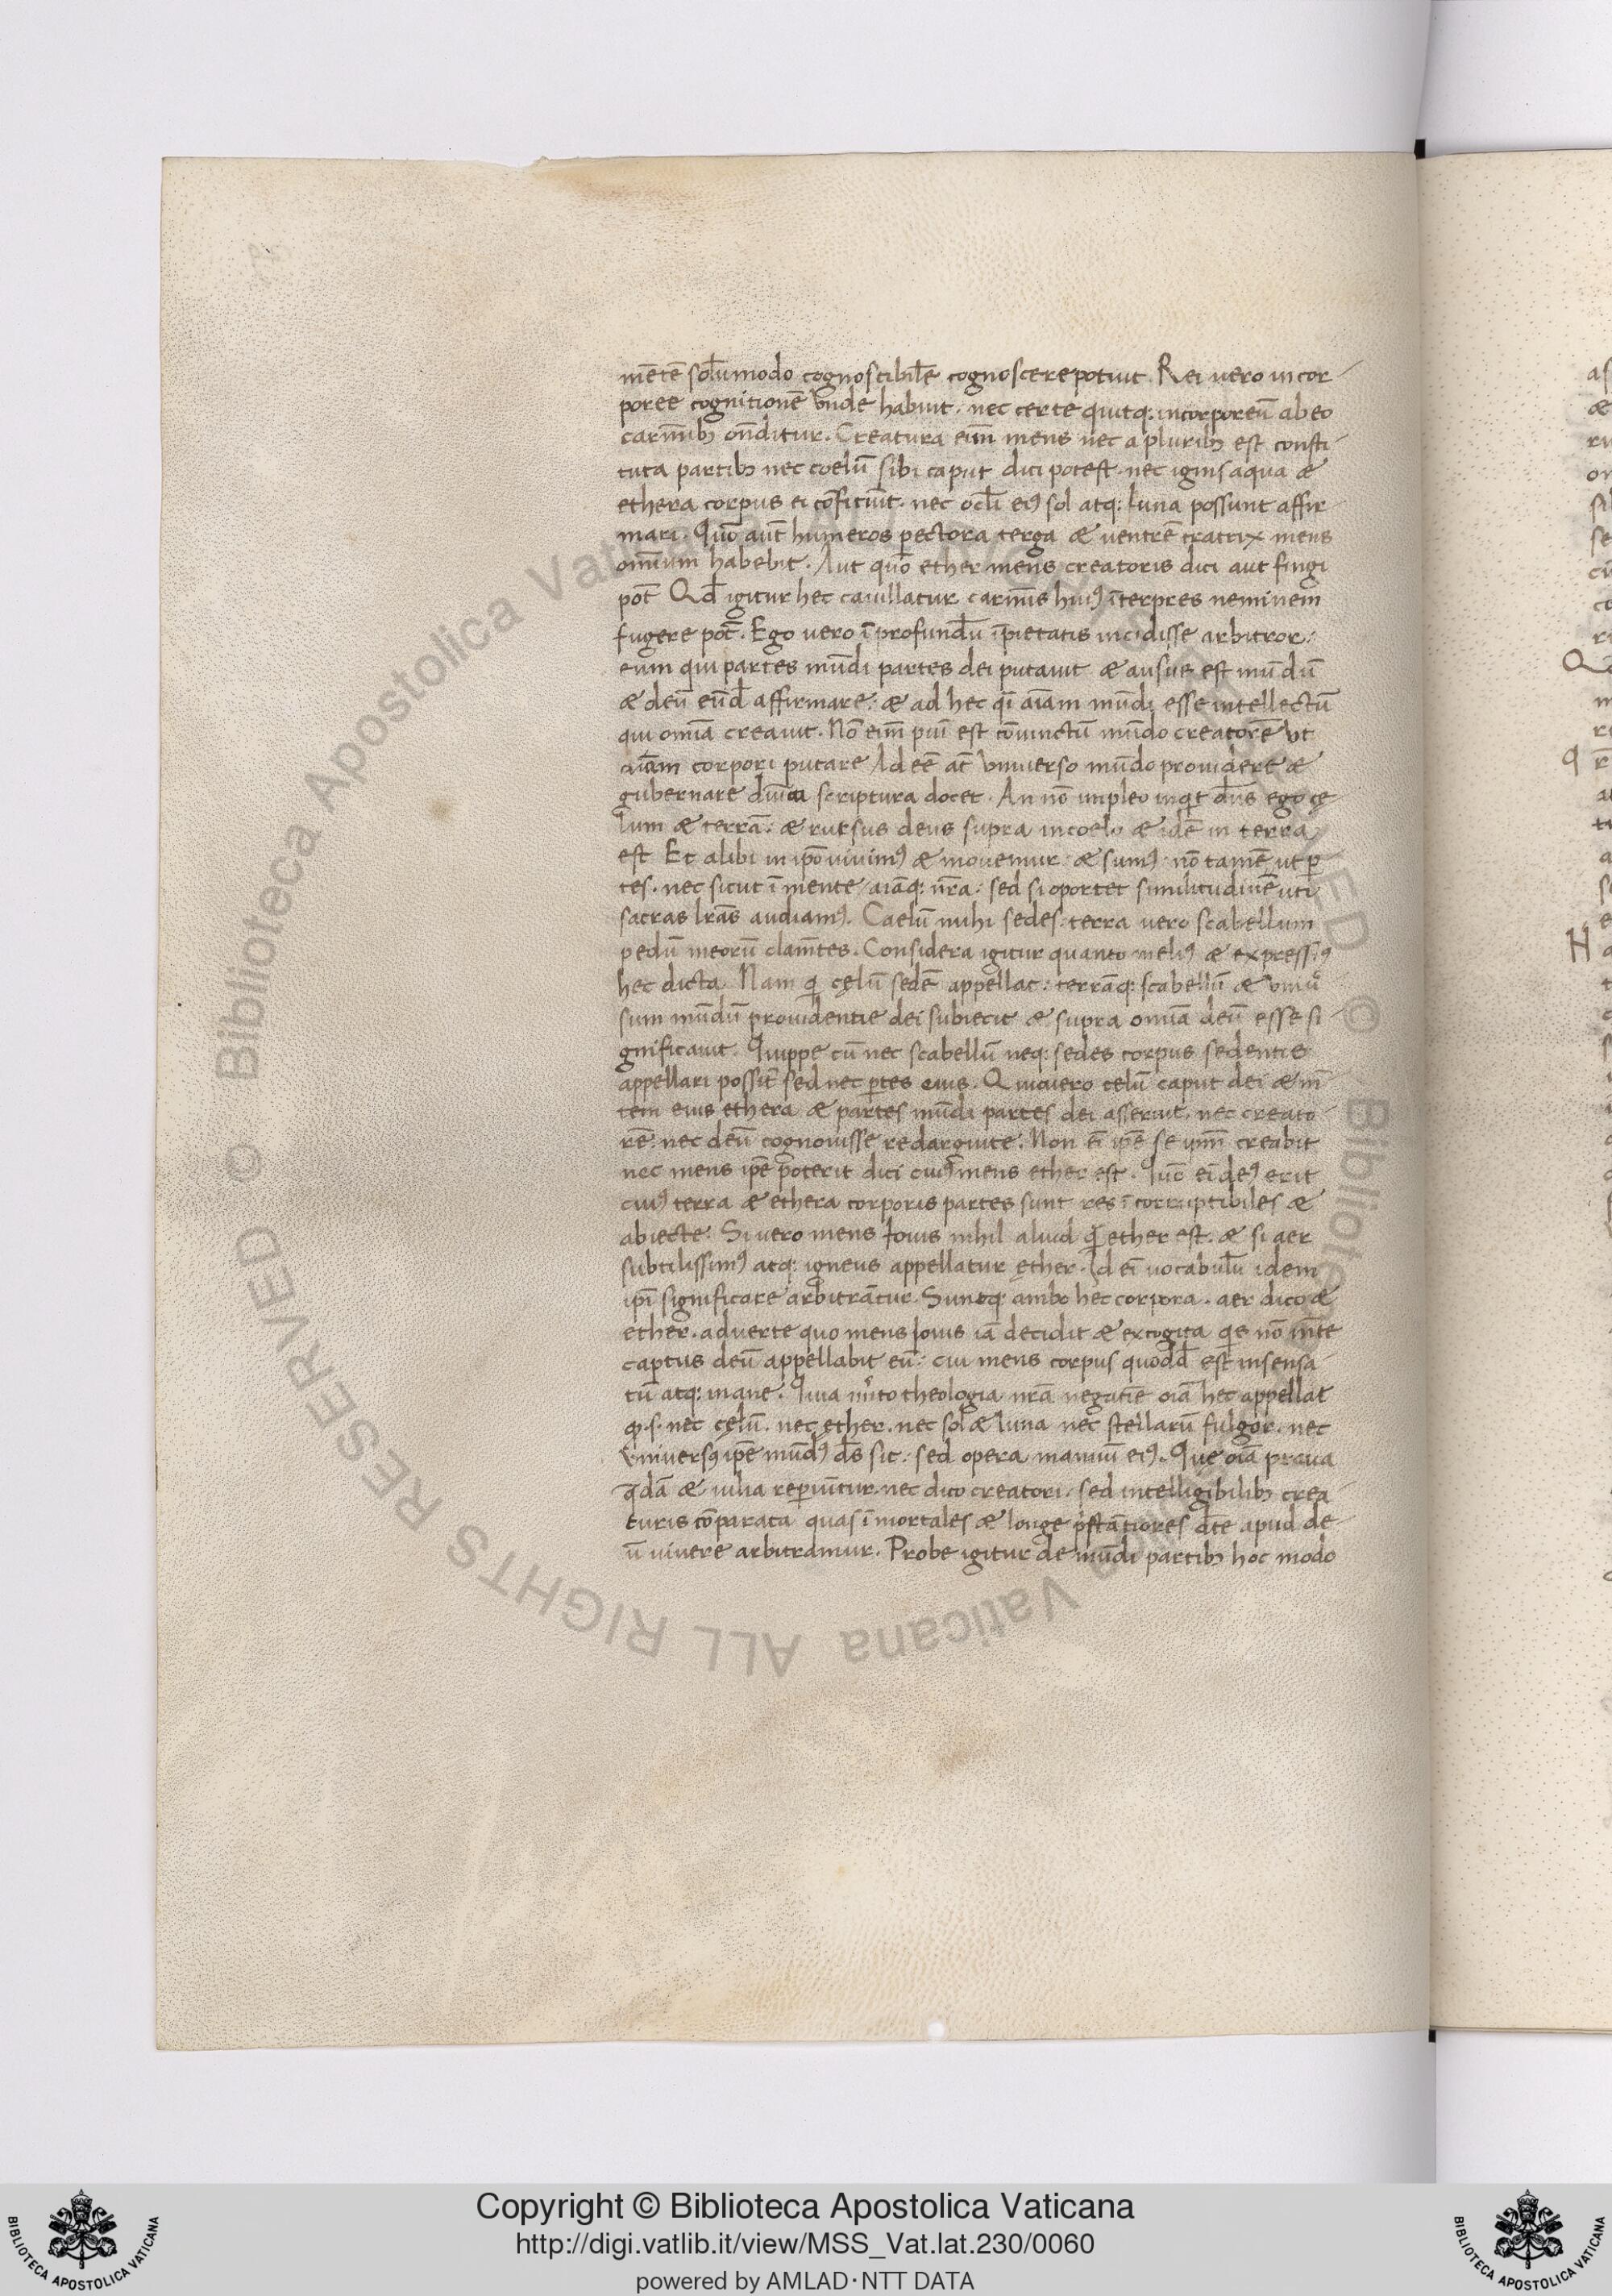 mētē solūmodo cognoscibilē cognoscere potuit. Rei uero incor
poree cognitionē unde habuit. nec certe quitq: incorporeū ab eo
carmīb onditur. Creatura eim mens nec a plurib est consti
tuta partib nec coelū sibi caput dici potest. nec ignis aqua &
ethera corpus ei cōficiūt. nec ocli eiꝰ sol atq: luna possunt affir
mari. Quō aut humeros pectora terga & uentrē
omnium habebit. Aut quō ether mens creatoris dici aut fingi
pōt Qd igitur hec cauillatur carmīs huiꝰ īterpres neminem
fugere pōt. Ego uero ī profundū īpietatis incidisse arbitror:
eum qui partes mūdi partes dei putauit & ausus est mūdū
& deū eūd affirmare: & ad hec qī aīam mūdi esse intellectū
qui omīa creauit. Nō eim est cōiunctū mūdo creatorē ut
aīam corpori putare Id eē at uniuerso mūdo prouidere &
gubernare diuīa scriptura docet. An nō impleo inqt dns ego cę
lum & terrā: & rursus deus supra in coelo & idē in terra
est Et alibi in ipō uiuimꝰ & mouemur & sumꝰ nō tamē ut p
tes. nec sicut ī mente aīaq: nra. sed si oportet similitudinē uti
sacras lras audiamꝰ. Caelū mihi sedes. terra uero scabellum
pedū meorū clamtes. Considera igitur quanto meliꝰ & expressiꝰ
hec dicta. Nam q cęlū sedē appellat. terrāq: scabellū & uniu
sum mūdū prouidentie dei subiecit & supra omīa deū esse si
gnificauit. Quippe cū nec scabellū neq: sedes corpus sedentis
appellari possit sed nec ptes eius. Qui uero celū caput dei & m
tem eius ethera & partes mūdi partes dei asserit. nec creato
rē. nec deū cognouisse redarguite. Non ei ipē se creabit
nec mens ipē poterit dici cuiꝰ mens ether est. Quō ei deꝰ erit
cuiꝰ terra & ethera corporis partes sunt res īcorruptibiles &
abiecte. Si uero mens Iouis nihil aliud q ether est. & si aer
subtilissimꝰ atq: igneus appellatur ęther. Id ei uocabulū idem
ipī significare arbitrātur. Suntq: ambo hec corpora. aer dico &
ether. aduerte quo mens Iouis iā decidit & excogita qs nō mte
captus deū appellabit eū: cui mens corpus quodd est insensa
tū atq: inane. Quia mito theologia nra negatiē oīa hec appellat
qp .s. nec cęlū. nec ęther. nec sol & luna nec stellarū fulgor. nec
uniuersꝰ ipē mūdꝰ ds sit: sed opera manuū eiꝰ. Que oīa praua
qdā & uilia reperiūtur. nec dico creatori. sed intelligibilib crea
turis cōparata quas īmortales & longe pstātiores apud de
ū uiuere arbitramur. Probe igitur de mūdi partib hoc modo
Copyright © Biblioteca Apostolica Vaticana
http://digi.vatlib.it/view/MSS_Vat.lat.230/0060
powered by AMLAD·NTT DATA